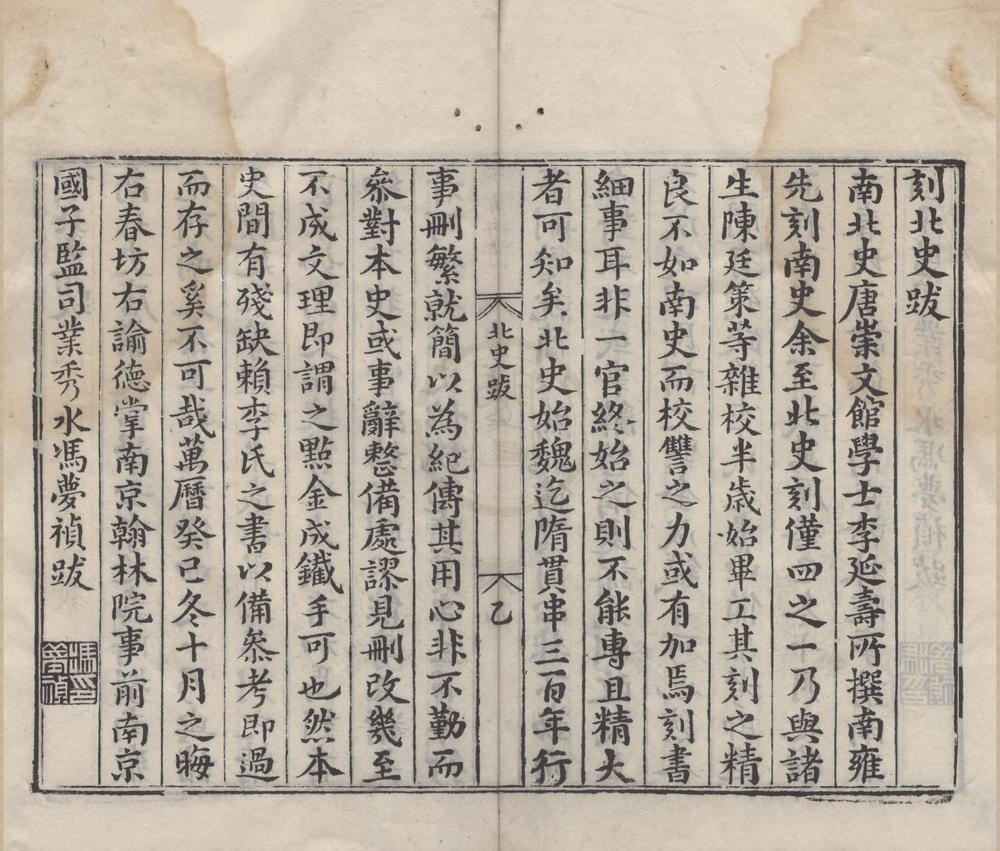 刻北史跋
南北史唐崇文館學士李延壽所撰南雍
先刻南史余至北史刻僅四之一乃與諸
生陳廷策等雜校半歲始畢工其刻之精
良不如南史而校讐之力或有加焉刻書
細事耳非一官終始之則不能專且精大
者可知矣北史始魏迄隋貫串三百年行
北史跋
乙
事刪繁就簡以為紀傳其用心非不勤而
叅對本史或事辭整備處謬見刪改幾至
不成文理即謂之點金成鐵手可也然本
史間有殘缺賴李氏之書以備叅考即過
而存之奚不可哉萬曆癸巳冬十月之晦
右春坊右諭德掌南京翰林院事前南京
國子監司業秀水馮夢禎跋
馮夢禎